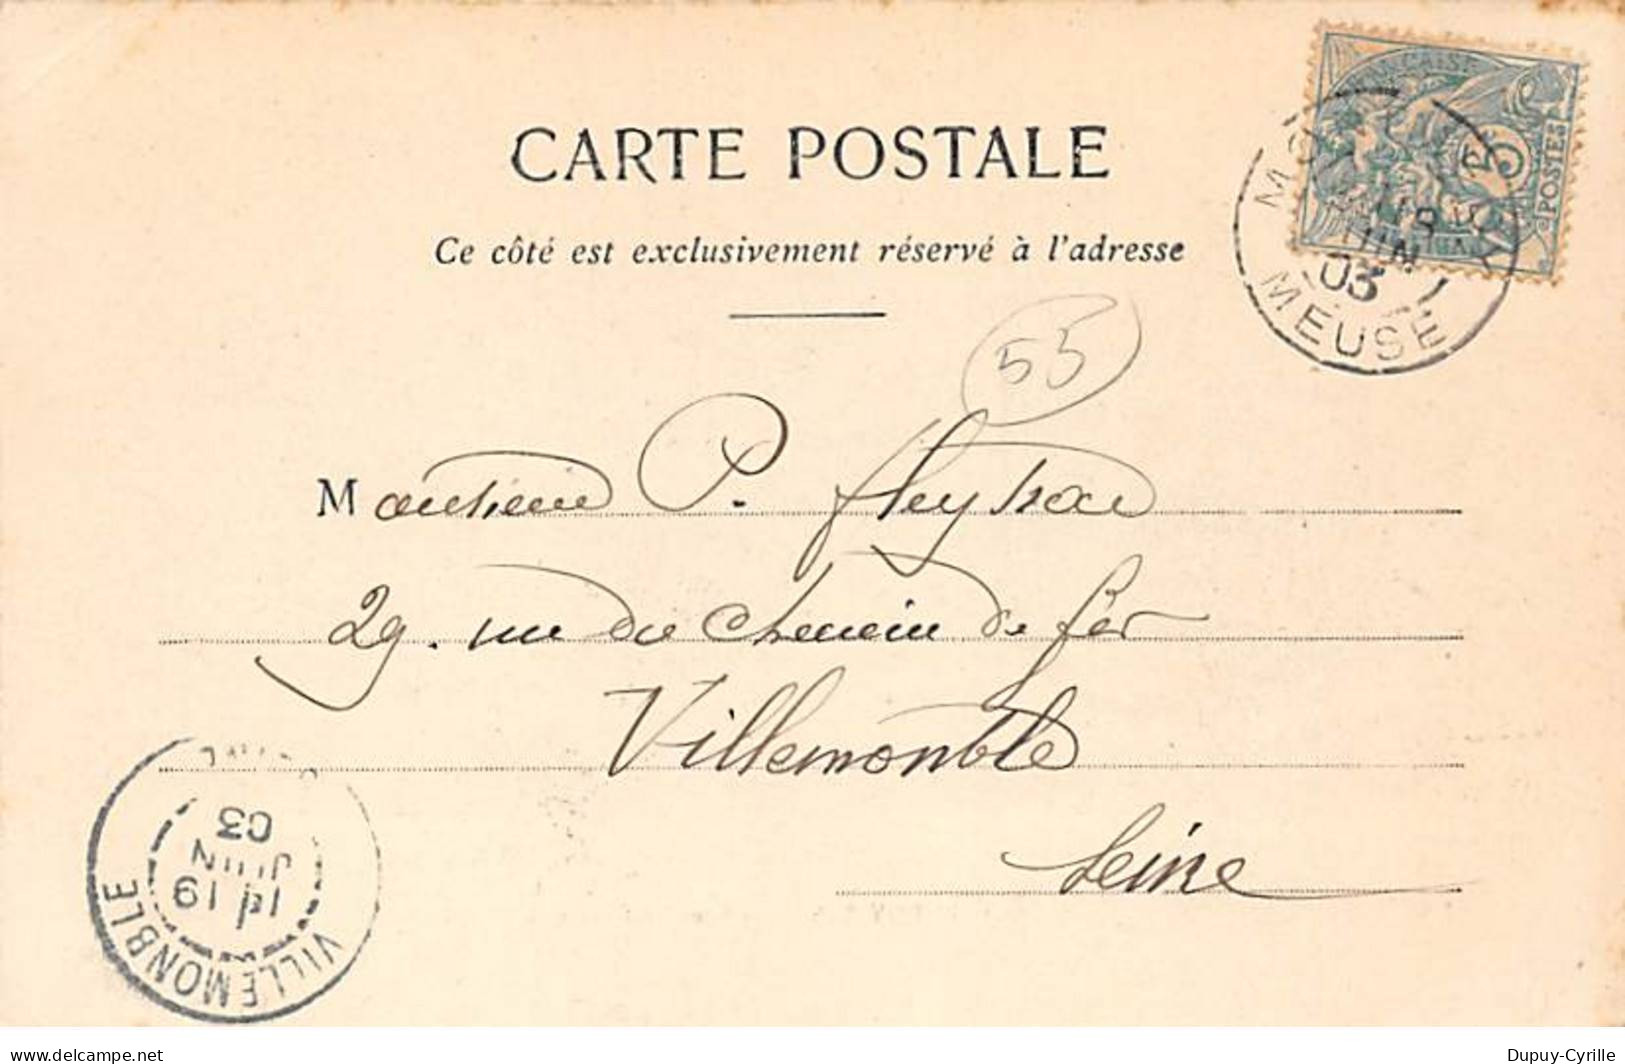 CARTE POSTALE
Ce côté est exclusivement réservé à l'adresse
55
Monsieur P. Fleytoux
29. rue du Chemin de fer
Villemonble
Seine
POSTES
5
JUIN
03
MEUSE
03
JUIN
19
VILLEMONBLE
www.delcampe.net
Dupuy-Cyrille